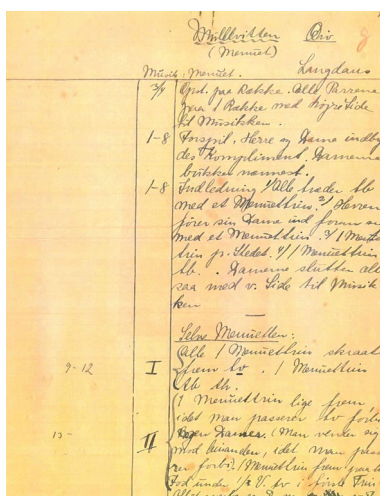 Mollevitten Div 8
(Menuet)
Musik: Menuet. Langdans
3/4 Opst. paa Række. Alle Parrene
paa 1 Række med Højre Side
til Musikken.
1-8 Forspil, Herre og Dame indby
des Kompliment. Damerne
nærmest.
1-8 Indledning 1/ Alle træder tb
med et Menuettrin. 2/ Herren
fører sin Dame ind foran
med et Menuettrin. 3/ 1 Menuet
trin p. Stedet. 4/ 1 Menuettrin
tb. . Damerne slutter alt
saa med v. Side til Musik
ken
Selve Menuetten:
9-12 I Alle 1 Menuettrin skraat
frem tv . 1 Menuettrin
tb th.
1 Menuettrin lige frem,
idet man passerer tv forbi
II Damen. (Man vender sig
mod hinanden, idet man pas
rer forbi. 1 Menuettrin frem
tv i første Trin